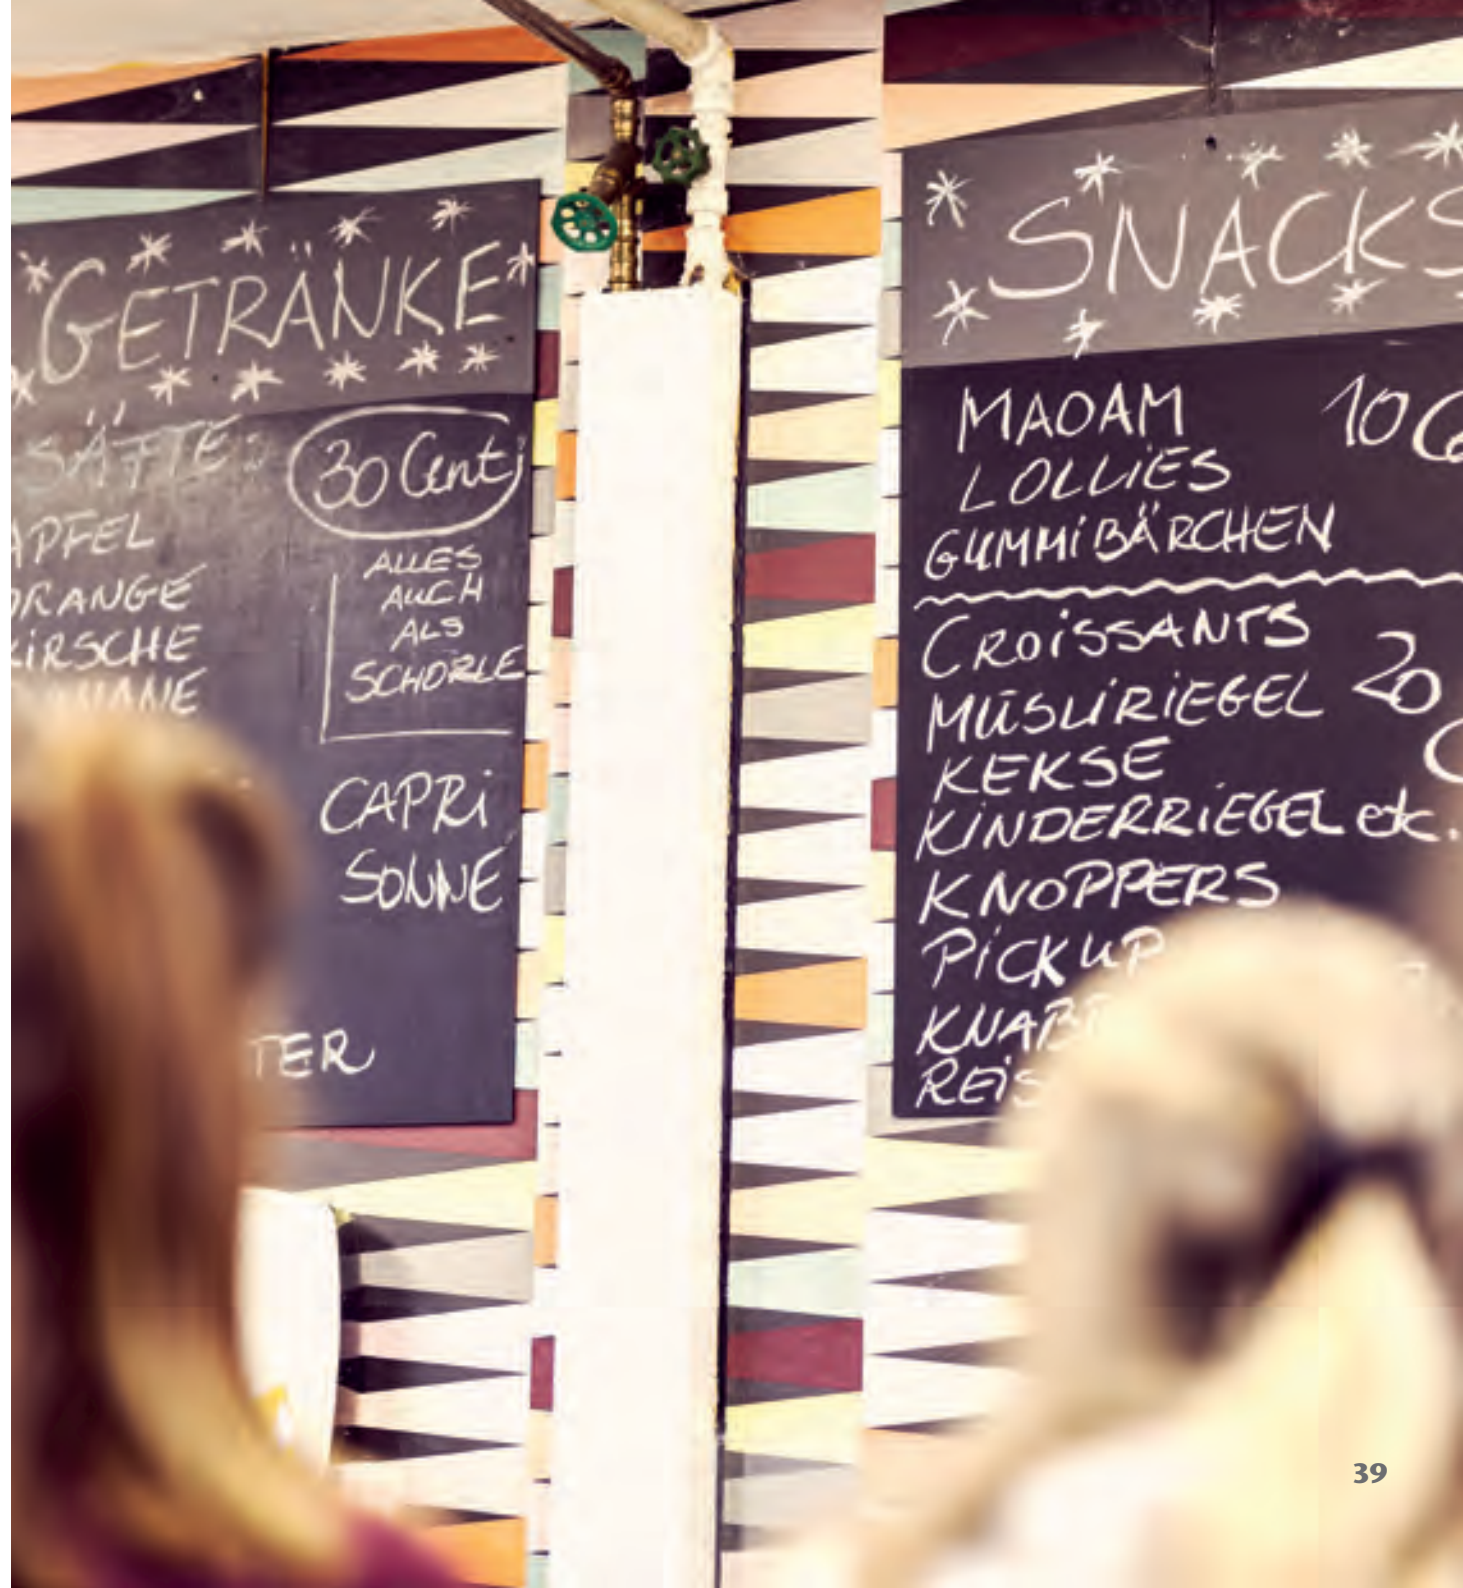 GETRÄNKE
SÄFTE:
30 Cent
APFEL
ORANGE
KIRSCHE
ALLES
AUCH
ALS
SCHORLE
CAPRI
SONNE
SNACKS
MAOAM 10
LOLLIES
GUMMIBÄRCHEN
CROISSANTS
MÜSLIRIEGEL 20
KEKSE
KINDERRIEGEL etc.
KNOPPERS
PICK UP
39